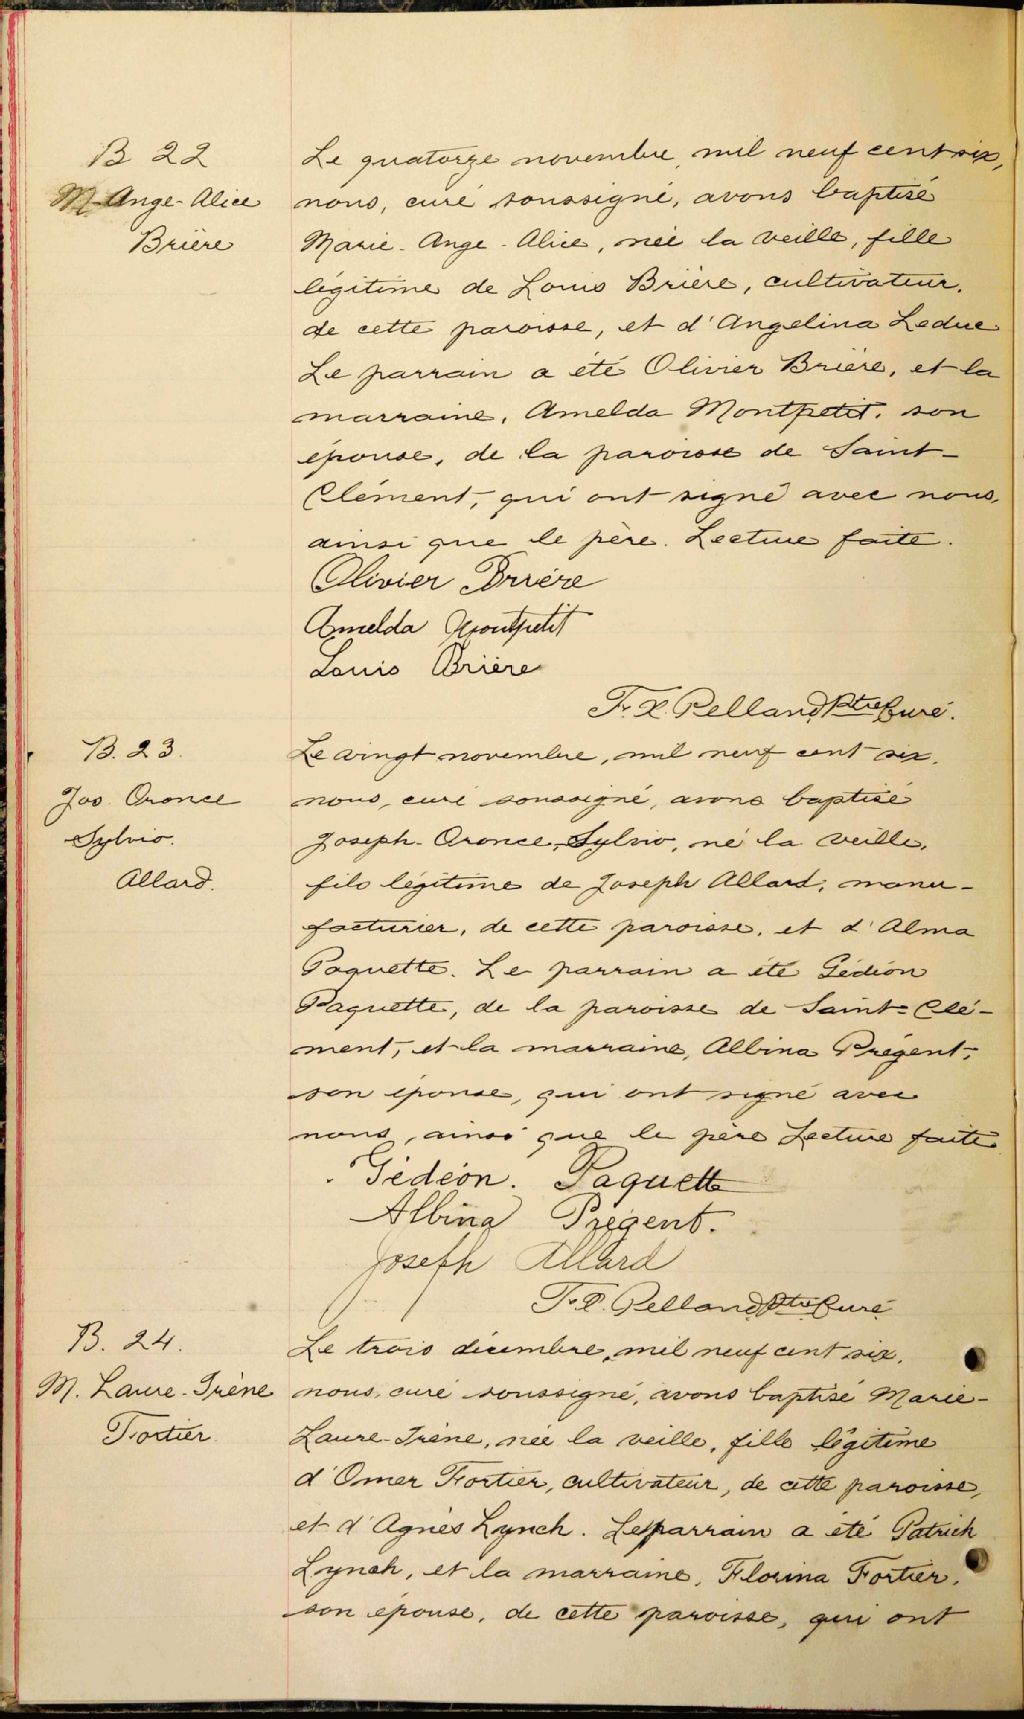 B 22
M-Ange-Alice
Brière
Le quatorze novembre, mil neuf cent six,
nous, curé soussigné, avons baptisé
Marie-Ange-Alice, née la veille, fille
légitime de Louis Brière, cultivateur,
de cette paroisse, et d'Angelina Leduc
Le parrain a été Olivier Brière, et la
marraine, Amelda Montpetit, son
épouse, de la paroisse de Saint-
Clément, qui ont signé avec nous,
ainsi que le père. Lecture faite.
Olivier Brière
Amelda Montpetit
Louis Brière
F. X. Pelland Ptre Curé.
B. 23.
Jos. Oronce
Sylvio.
Allard.
Le vingt novembre, mil neuf cent six,
nous, curé soussigné, avons baptisé
Joseph-Oronce-Sylvio, né la veille,
fils légitime de Joseph Allard, manu-
facturier, de cette paroisse, et d'Alma
Paquette. Le parrain a été Gédéon
Paquette, de la paroisse de Saint-Clé-
ment, et la marraine, Albina Prégent,
son épouse, qui ont signé avec
nous, ainsi que le père Lecture faite.
Gédéon. Paquette
Albina Prégent.
Joseph Allard
F. X. Pelland Ptre Curé
B. 24.
M. Laure-Irène
Fortier
Le trois décembre, mil neuf cent six,
nous, curé soussigné, avons baptisé Marie-
Laure-Irène, née la veille, fille légitime
d'Omer Fortier, cultivateur, de cette paroisse,
et d'Agnès Lynch. Le parrain a été Patrick
Lynch, et la marraine, Florina Fortier,
son épouse, de cette paroisse, qui ont